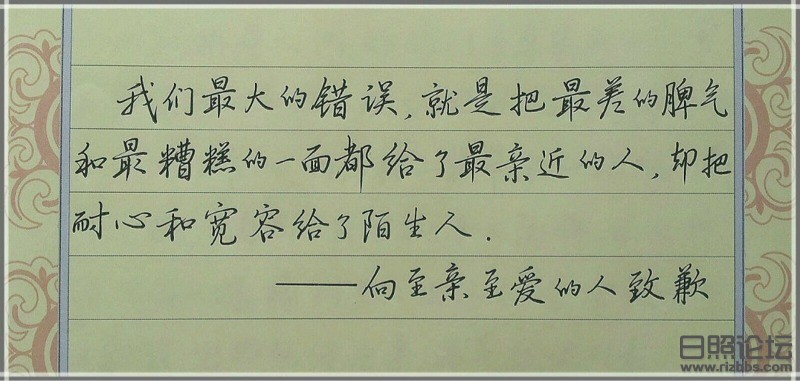 我们最大的错误,就是把最差的脾气
和最糟糕的一面都给了最亲近的人,却把
耐心和宽容给了陌生人.
——向至亲至爱的人致歉
日照论坛
www.rizbbs.com